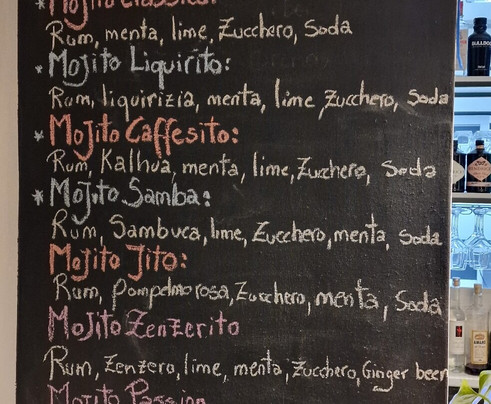 *Mojito Classico:
Rum, menta, lime, Zucchero, Soda
*Mojito Liquirito:
Rum, liquirizia, menta, lime, Zucchero, Soda
*Mojito Caffesito:
Rum, Kalhua, menta, lime, Zucchero, Soda
*Mojito Samba:
Rum, Sambuca, lime, Zucchero, menta, Soda
Mojito Jito:
Rum, pompelmo rosa, Zucchero, menta, Soda
Mojito Zenzerito
Rum, Zenzero, lime, menta, Zucchero, Ginger beer
Mojito Passion
BULLDOG